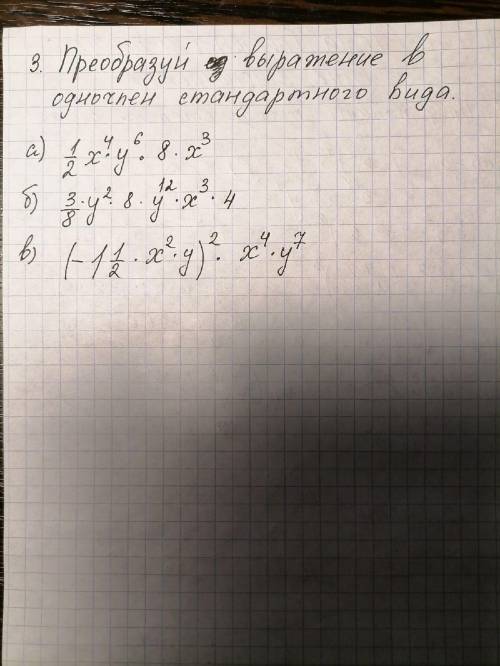 3. Преобразуй выражение в
одночлен стандартного вида.
а) 1/2 x⁴·y⁶·8·x³
б) 3/8·y²·8·y¹²·x³·4
в) (-1 1/2·x²·y)²·x⁴·y⁷